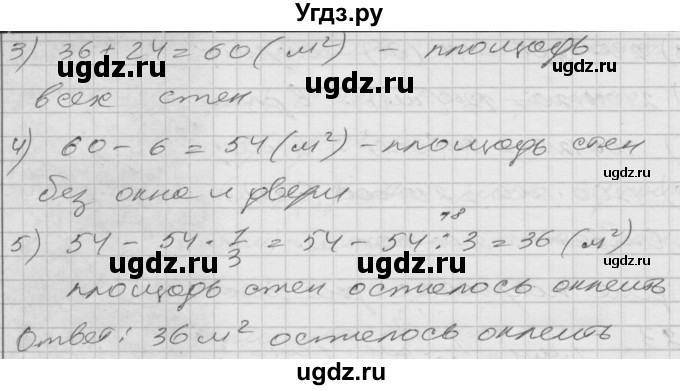 Угдз.ру
3) 36 + 24 = 60 (м²) – площадь
ugdz.ru ugdz.ru
всех стен
4) 60 – 6 = 54 (м²) – площадь стен
ugdz.ru ugdz.ru
без окна и двери
18
5) 54 – 54 · 1/3 = 54 – 54 : 3 = 36 (м²)
ugdz.ru ugdz.ru
площадь стен осталось оклеить
Ответ: 36 м² осталось оклеить
ugdz.ru ugdz.ru
ugdz.ru